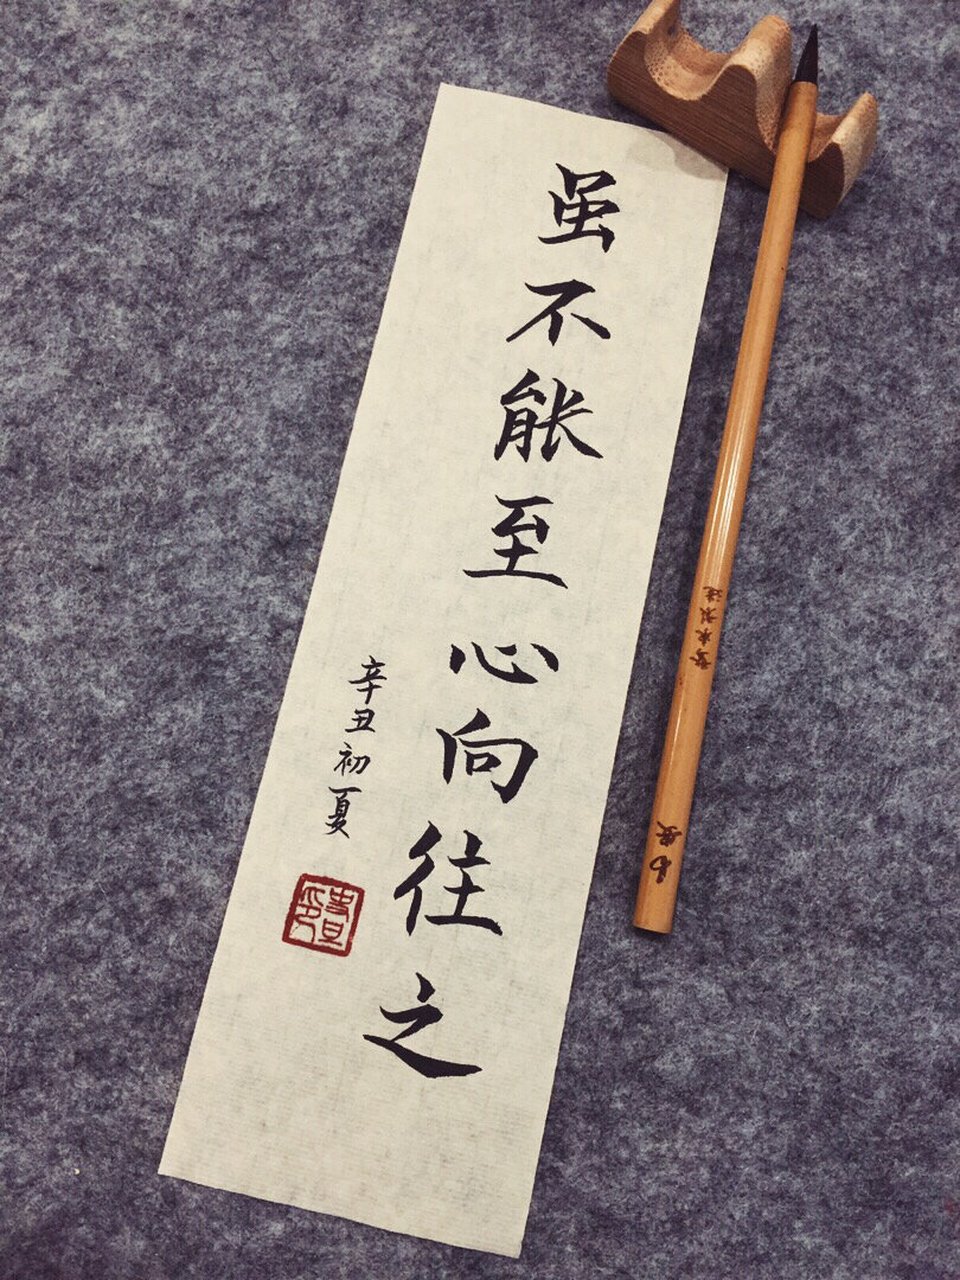 虽不能至心向往之
辛丑初夏